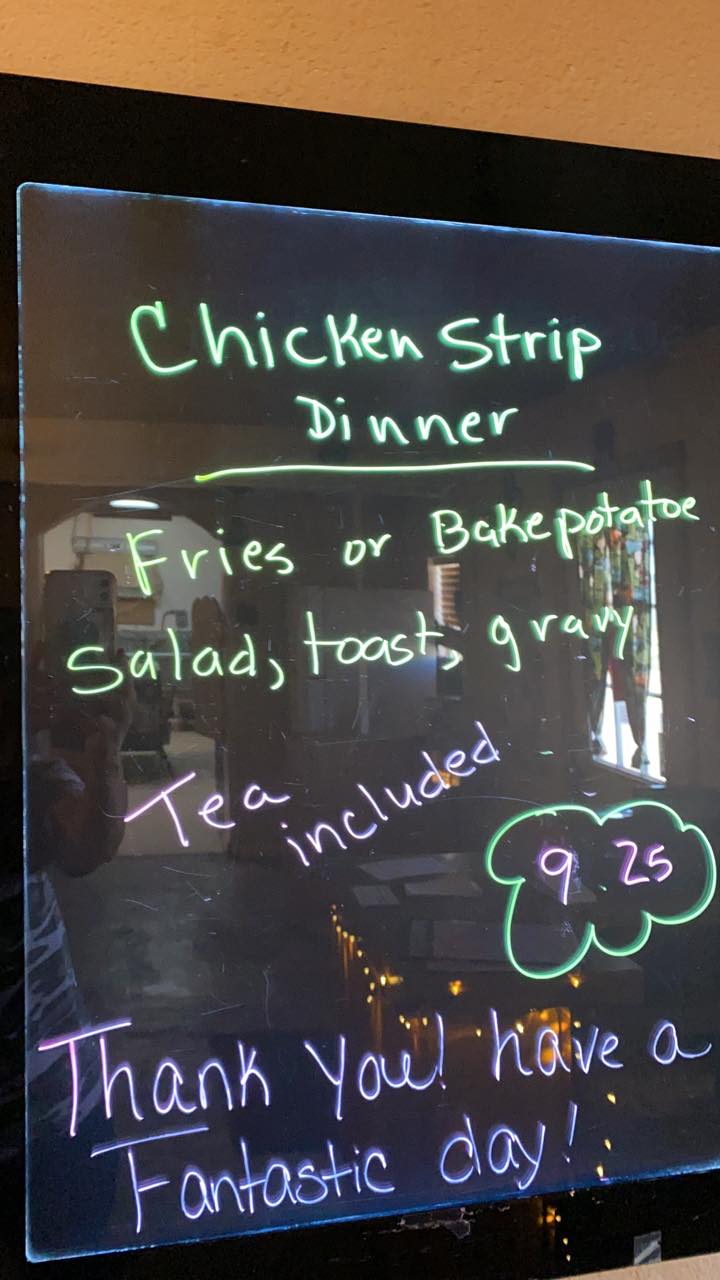 Chicken Strip
Dinner
Fries or Bakepotatoe
Salad, toast, gravy
Tea
included
9.25
Thank You! have a
Fantastic day!